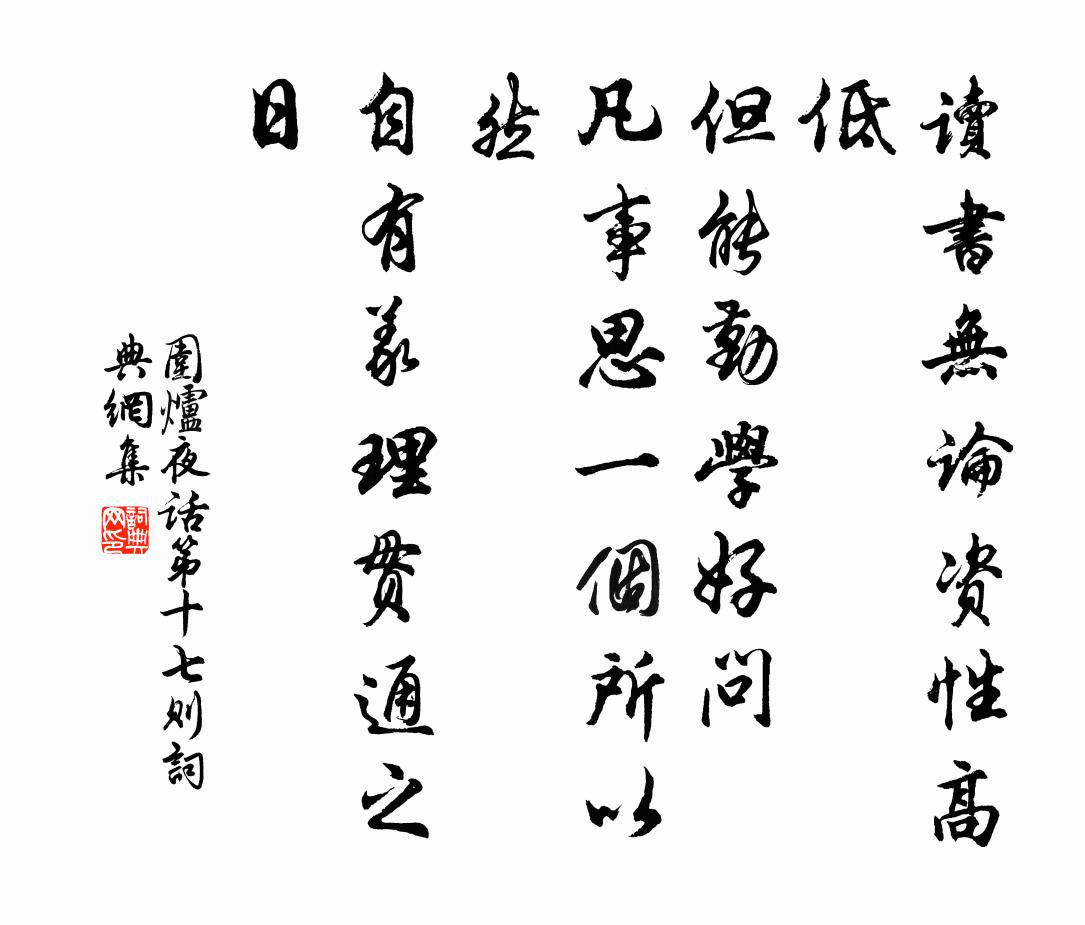 讀書無論資性高
低
但能勤學好問
凡事思一個所以
然
自有義理貫通之
日
圍爐夜話第十七則詞
典網集
詞典
网印